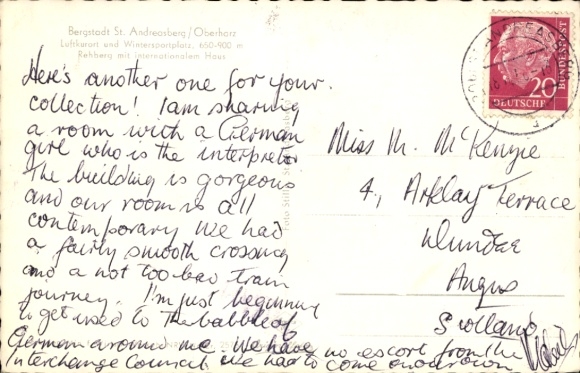 Bergstadt St. Andreasberg/Oberharz
Luftkurort und Wintersportplatz, 650-900 m
Rehberg mit internationalem Haus
Here's another one for your
collection! I am sharing
a room with a German
girl who is the interpreter
The building is gorgeous
and our room is all
contemporary We had
a fairly smooth crossing
and a not too bad train
journey. I'm just beginning
to get used to the babble of
German around me. We have no escort from the
Interchange Council we had to come on our own
20
DEUTSCHE
BUNDESPOST
Miss M. McKenzie
4, Arklay Terrace
Dundee
Angus
Scotland
Foto